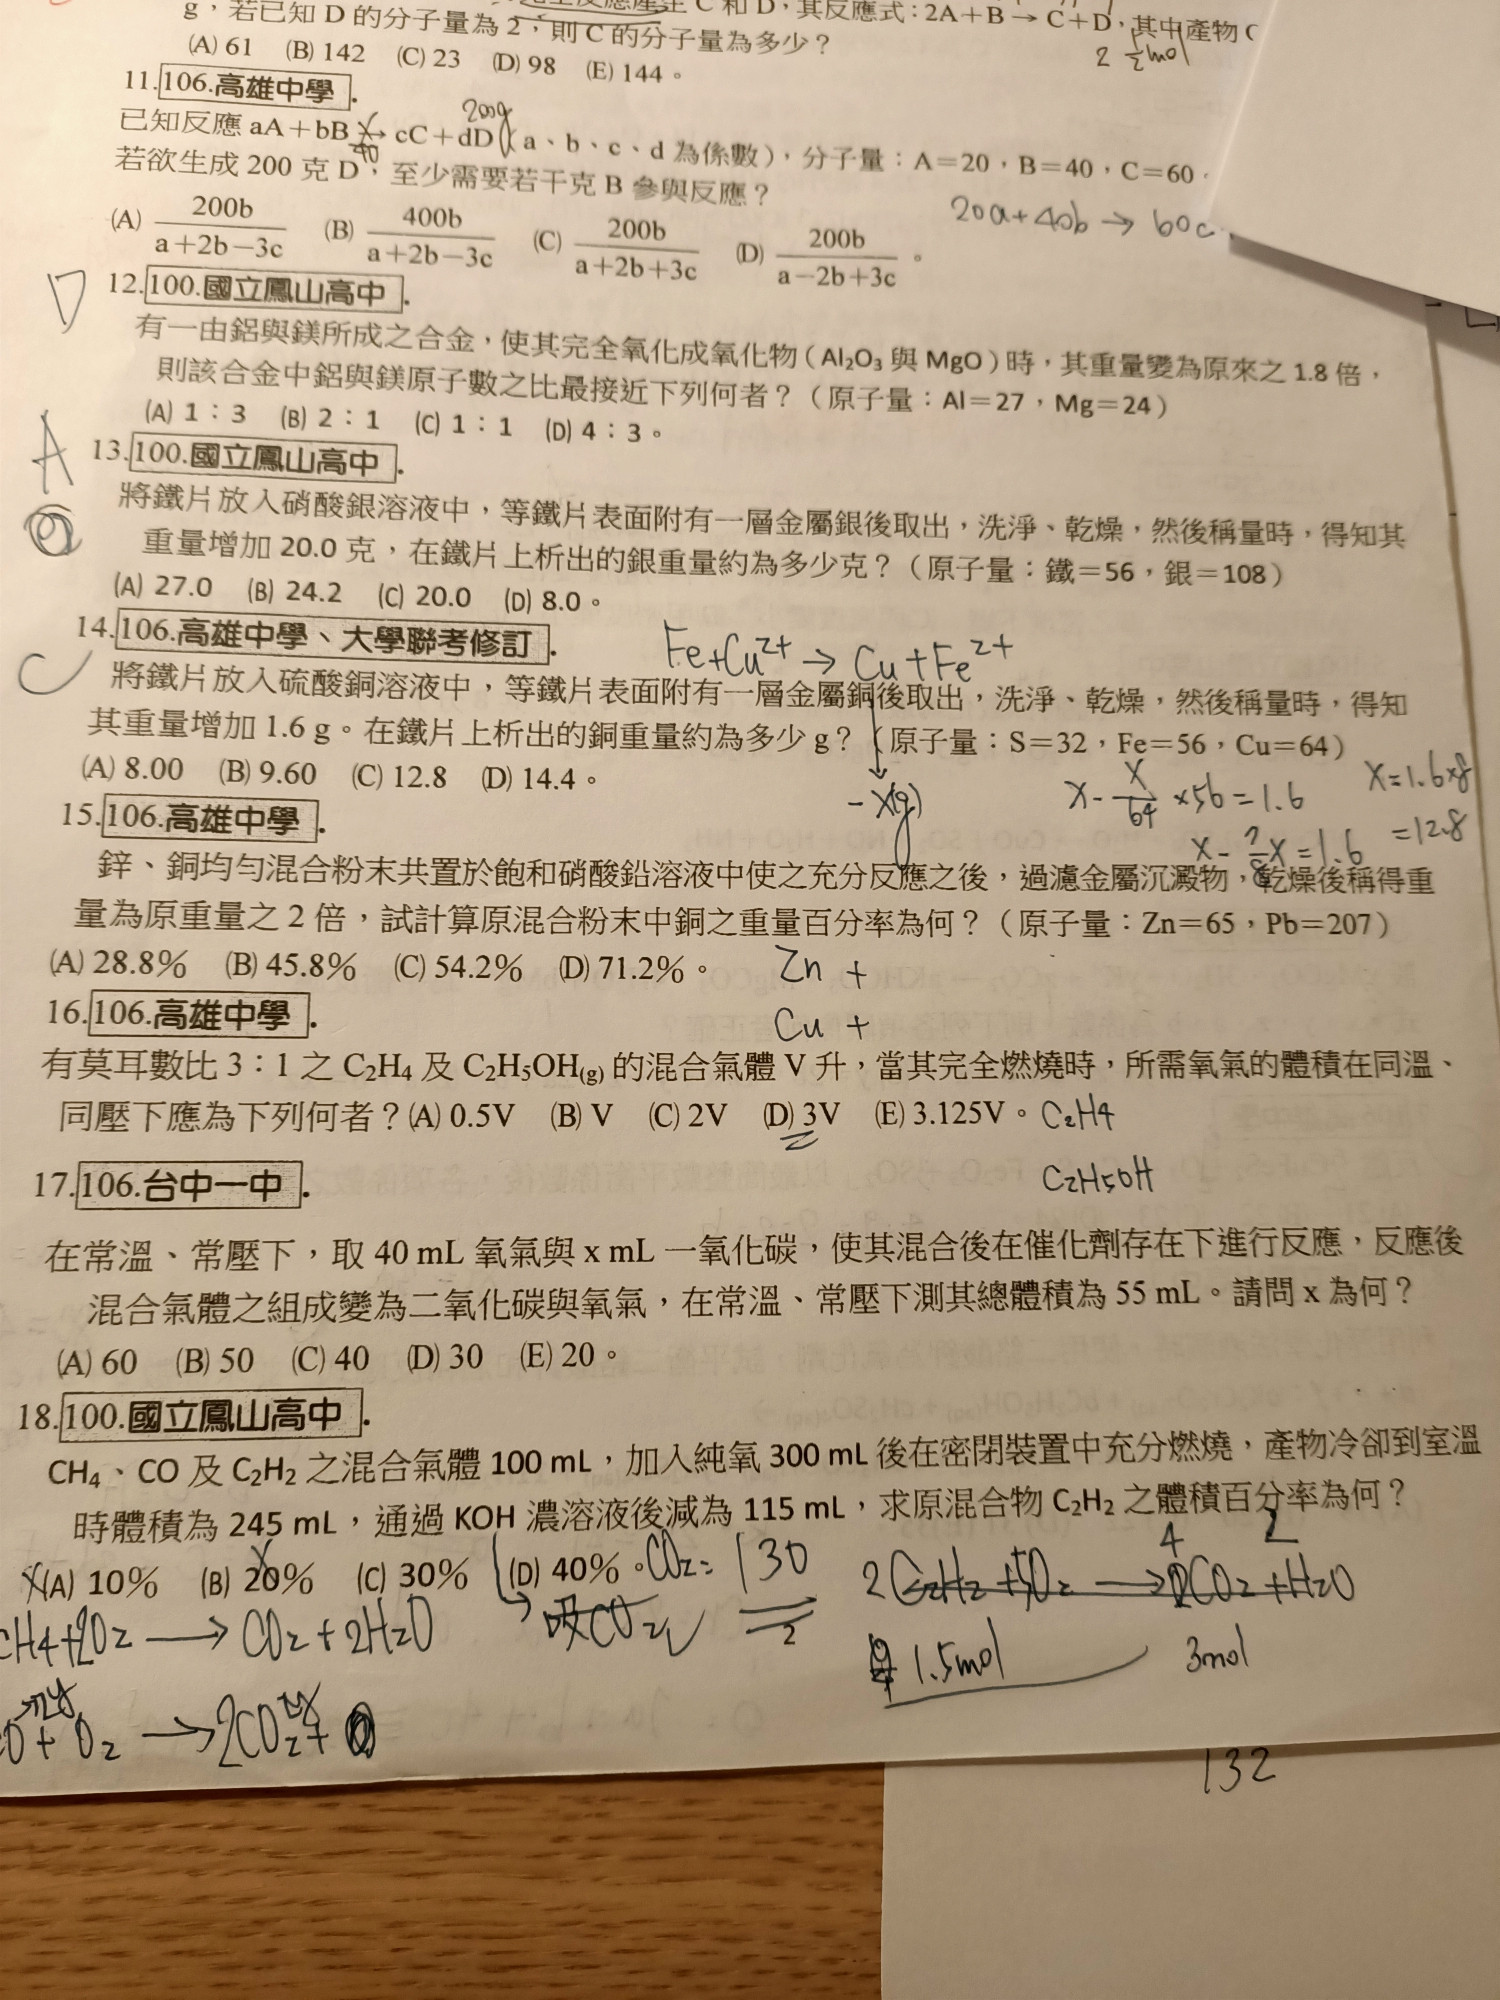 g，若已知 D 的分子量為 2，則 C 的分子量為多少？
C 和 D，其反應式：2A＋B → C＋D，其中產物 C
2 ½mol
(A) 61 (B) 142 (C) 23 (D) 98 (E) 144。
11.106.高雄中學.
200g
已知反應 aA＋bB → cC＋dD（a、b、c、d 為係數），分子量：A＝20，B＝40，C＝60，
若欲生成 200 克 D，至少需要若干克 B 參與反應？
20a+40b → 60c
(A) 200b/a＋2b－3c (B) 400b/a＋2b－3c (C) 200b/a＋2b＋3c (D) 200b/a－2b＋3c。
D
12.100.國立鳳山高中.
有一由鋁與鎂所成之合金，使其完全氧化成氧化物（Al₂O₃ 與 MgO）時，其重量變為原來之 1.8 倍，
則該合金中鋁與鎂原子數之比最接近下列何者？（原子量：Al＝27，Mg＝24）
(A) 1：3 (B) 2：1 (C) 1：1 (D) 4：3。
A
13.100.國立鳳山高中.
將鐵片放入硝酸銀溶液中，等鐵片表面附有一層金屬銀後取出，洗淨、乾燥，然後稱量時，得知其
重量增加 20.0 克，在鐵片上析出的銀重量約為多少克？（原子量：鐵＝56，銀＝108）
(A) 27.0 (B) 24.2 (C) 20.0 (D) 8.0。
14.106.高雄中學、大學聯考修訂.
Fe+Cu²⁺ → Cu+Fe²⁺
C
將鐵片放入硫酸銅溶液中，等鐵片表面附有一層金屬銅後取出，洗淨、乾燥，然後稱量時，得知
其重量增加 1.6 g。在鐵片上析出的銅重量約為多少 g？（原子量：S＝32，Fe＝56，Cu＝64）
(A) 8.00 (B) 9.60 (C) 12.8 (D) 14.4。
-X(g)
X-X/64×56=1.6
X=1.6×8
X-7/8X=1.6
=12.8
15.106.高雄中學.
鋅、銅均勻混合粉末共置於飽和硝酸鉛溶液中使之充分反應之後，過濾金屬沉澱物，乾燥後稱得重
量為原重量之 2 倍，試計算原混合粉末中銅之重量百分率為何？（原子量：Zn＝65，Pb＝207）
(A) 28.8% (B) 45.8% (C) 54.2% (D) 71.2%。
Zn +
Cu +
16.106.高雄中學.
有莫耳數比 3：1 之 C₂H₄ 及 C₂H₅OH(g) 的混合氣體 V 升，當其完全燃燒時，所需氧氣的體積在同溫、
同壓下應為下列何者？(A) 0.5V (B) V (C) 2V (D) 3V (E) 3.125V。
C₂H₄
C₂H₅OH
17.106.台中一中.
在常溫、常壓下，取 40 mL 氧氣與 x mL 一氧化碳，使其混合後在催化劑存在下進行反應，反應後
混合氣體之組成變為二氧化碳與氧氣，在常溫、常壓下測其總體積為 55 mL。請問 x 為何？
(A) 60 (B) 50 (C) 40 (D) 30 (E) 20。
18.100.國立鳳山高中.
CH₄、CO 及 C₂H₂ 之混合氣體 100 mL，加入純氧 300 mL 後在密閉裝置中充分燃燒，產物冷卻到室溫
時體積為 245 mL，通過 KOH 濃溶液後減為 115 mL，求原混合物 C₂H₂ 之體積百分率為何？
(A) 10% (B) 20% (C) 30% (D) 40%。
CO₂=130
2
吸CO₂
4 2
2C₂H₂+5O₂ → CO₂+H₂O
1.5mol
3mol
CH₄+2O₂ → CO₂+2H₂O
O+O₂ → 2CO₂+
132